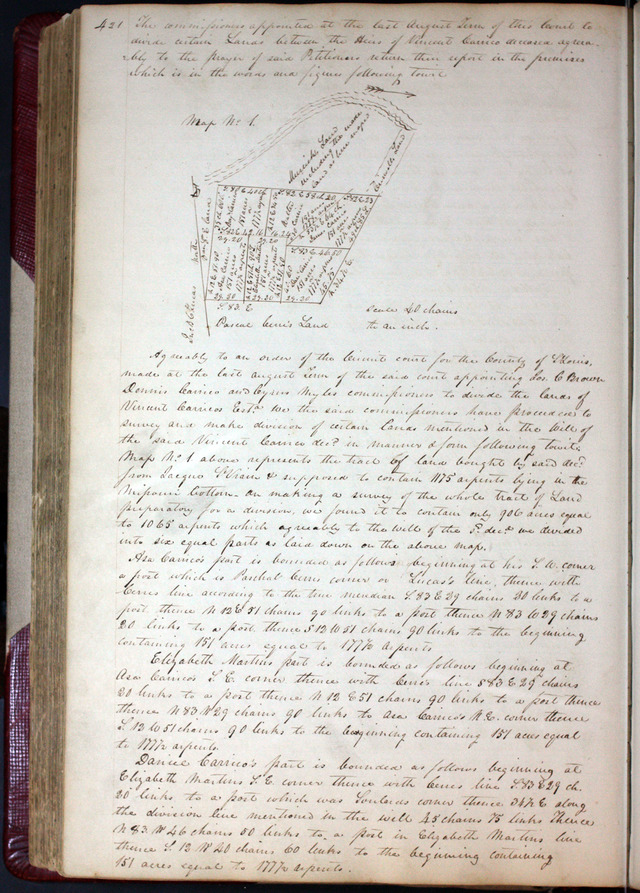 421
The commissioners appointed at the last August Term of this Court to
divide certain Lands between the Heirs of Vincent Carrico deceased agreea-
bly to the prayer of said Petitioners return their report in the premises
which is in the words and figures following towit
Map No 1.
Land
including the made
land as line
Land
S 83 E
Pascal Cerre's Land
Scale 40 chains
to an inch.
Agreeably to an order of the Circuit court for the County of St Louis,
made at the last august Term of the said court appointing Jos. C Brown
Dennis Carrico and Cyrus Myles commissioners to divide the lands of
Vincent Carricos Esta. We the said commissioners have proceeded to
survey and make division of certain lands mentioned in the Will of
the said Vincent Carrico decd in manner & form following towit,
Map No 1 above represents the tract of land bought by said decd
from Jacque St Vrain & supposed to contain 1175 arpents lying in the
Missouri bottom. on making a survey of the whole tract of Land
preparatory for a division, we found it to contain only 906 acres equal
to 1065 arpents which agreeably to the will of the sd decd we divided
into six equal parts as laid down on the above map.
Asa Carrico's part is bounded as follows beginning at his S. W. corner
a post which is Paschal Cerres corner on Lucas's line, thence with
Cerres line according to the true meridian S 83 E 29 chains 20 links to a
post thence N 12 E 51 chains 90 links to a post thence N 83 W 29 chains
20 links to a post thence S 12 W 51 chains 90 links to the beginning
containing 151 acres equal to 177½ arpents
Elizabeth Martins part is bounded as follows beginning at
Asa Carricos S. E. corner thence with Cerres line S 83 E 29 chains
20 links to a post thence N 12 E 51 chains 90 links to a post thence
thence N 83 W 29 chains 90 links to Asa Carrico's N. E. corner thence
S. 12 W 51 chains 90 links to the beginning containing 151 acres equal
to 177½ arpents.
Daniel Carrico's part is bounded as follows beginning at
Elizabeth Martins S. E. corner thence with Cerres line S. 83 E 29 ch.
20 links to a post which was Soulards corner thence 34 N E along
the division line mentioned in the will 45 chains 75 links Thence
N 83 W 46 chains 50 links to a post in Elizabeth Martins line
thence S. 12 W 40 chains 60 links to the beginning containing
151 acres equal to 177½ arpents.